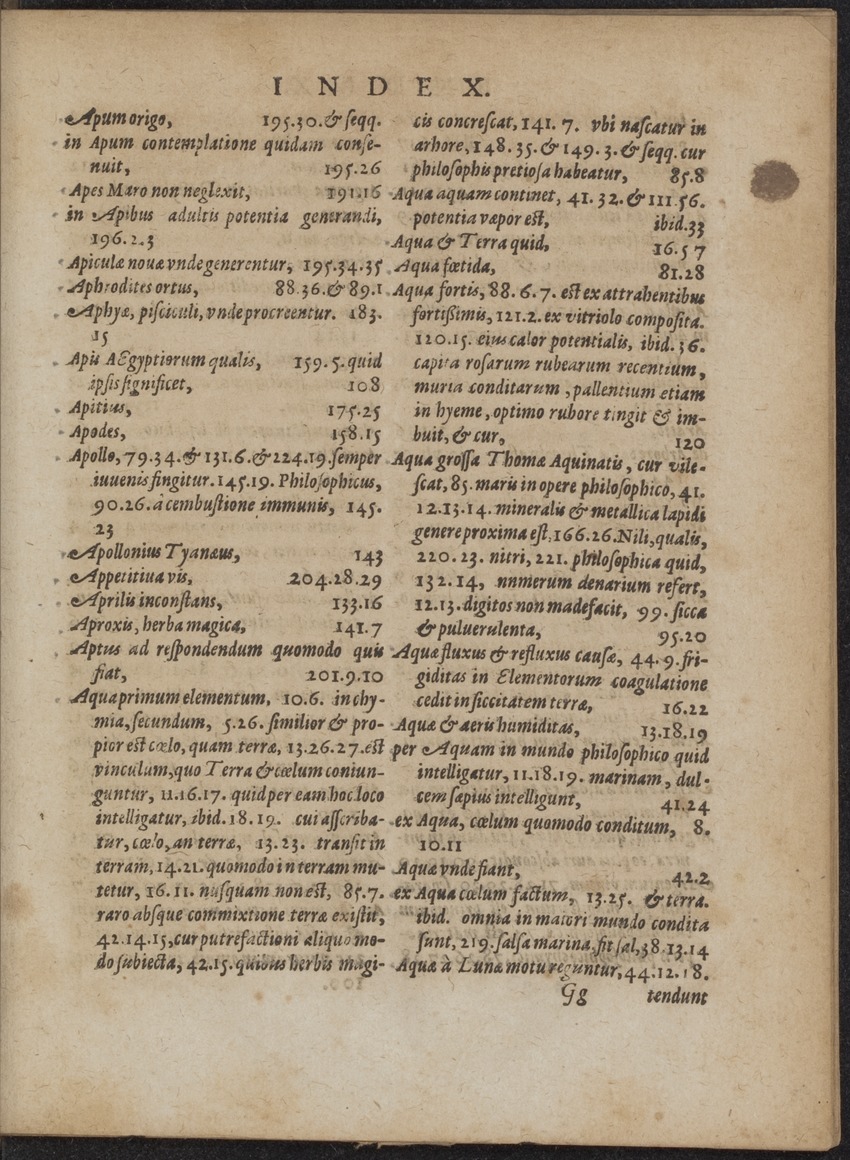 INDEX.
Apum origo, 195.30.& ſeqq.
in Apum contemplatione quidam conſe-
nuit, 195.26
Apes Maro non neglexit, 191.16
in Apibus adultis potentia generandi,
196.2.3
Apiculæ nouæ vnde generentur, 195.34.35
Aphrodites ortus, 88.36.& 89.1
Aphyæ, piſciculi, vnde procreentur. 183.
15
Apis AEgyptiorum qualis, 159.5.quid
ipſis ſignificet, 108
Apitius, 175.25
Apodes, 158.15
Apollo, 79.34.& 131.6.& 224.19.ſemper
iuuenis fingitur.145.19. Philoſophicus,
90.26. à combuſtione immunis, 145.
23
Apollonius Tyanæus, 143
Appetitiua vis, 204.28.29
Aprilis inconſtans, 133.16
Aproxis, herba magica, 141.7
Aptus ad reſpondendum quomodo quis
fiat, 201.9.10
Aqua primum elementum, 10.6. in chy-
mia, ſecundum, 5.26. ſimilior & pro-
pior eſt cœlo, quam terræ, 13.26.27.eſt
vinculum, quo Terra & cœlum coniun-
guntur, 11.16.17. quid per eam hoc loco
intelligatur, ibid.18.19. cui aſſcriba-
tur, cœlo, an terræ, 13.23. tranſit in
terram, 14.21. quomodo in terram mu-
tetur, 16.11. nuſquam non eſt, 85.7.
raro abſque commixtione terræ exiſtit,
42.14.15, cur putrefactioni aliquo mo-
do ſubiecta, 42.15. quibus herbis magi-
cis concreſcat, 141.7. vbi naſcatur in
arbore, 148.35.& 149.3.& ſeqq. cur
philoſophis pretioſa habeatur, 85.8
Aqua aquam continet, 41.32.& 111.56.
potentia væpor eſt, ibid.33
Aqua & Terra quid, 16.57
Aqua fœtida, 81.28
Aqua fortis, 88.6.7. eſt ex attrahentibus
fortißimis, 121.2. ex vitriolo compoſita.
120.15. eius calor potentialis, ibid.36.
capita roſarum rubearum recentium,
muria conditarum, pallentium etiam
in hyeme, optimo rubore tingit & im-
buit, & cur, 120
Aqua groſſa Thomæ Aquinatis, cur vile-
ſcat, 85. maris in opere philoſophico, 41.
12.13.14. mineralis & metallica lapidi
genere proxima eſt, 166.26. Nili, qualis,
220.23. nitri, 221. philoſophica quid,
132.14, nnmerum denarium refert,
12.13. digitos non madefacit, 99. ſicca
& puluerulenta, 95.20
Aquæ fluxus & refluxus cauſæ, 44.9.fri-
giditas in Elementorum coagulatione
cedit in ſiccitatem terræ, 16.22
Aquæ & aeris humiditas, 13.18.19
per Aquam in mundo philoſophico quid
intelligatur, 11.18.19. marinam, dul-
cem ſæpius intelligunt, 41.24
ex Aqua, cœlum quomodo conditum, 8.
10.11
Aquæ vnde fiant, 42.2
ex Aqua cœlum factum, 13.25. & terra.
ibid. omnia in maiori mundo condita
ſunt, 219. ſalſa marina, fit ſal, 38.13.14
Aquæ à Lunæ motu reguntur, 44.12.18.
Gg tendunt